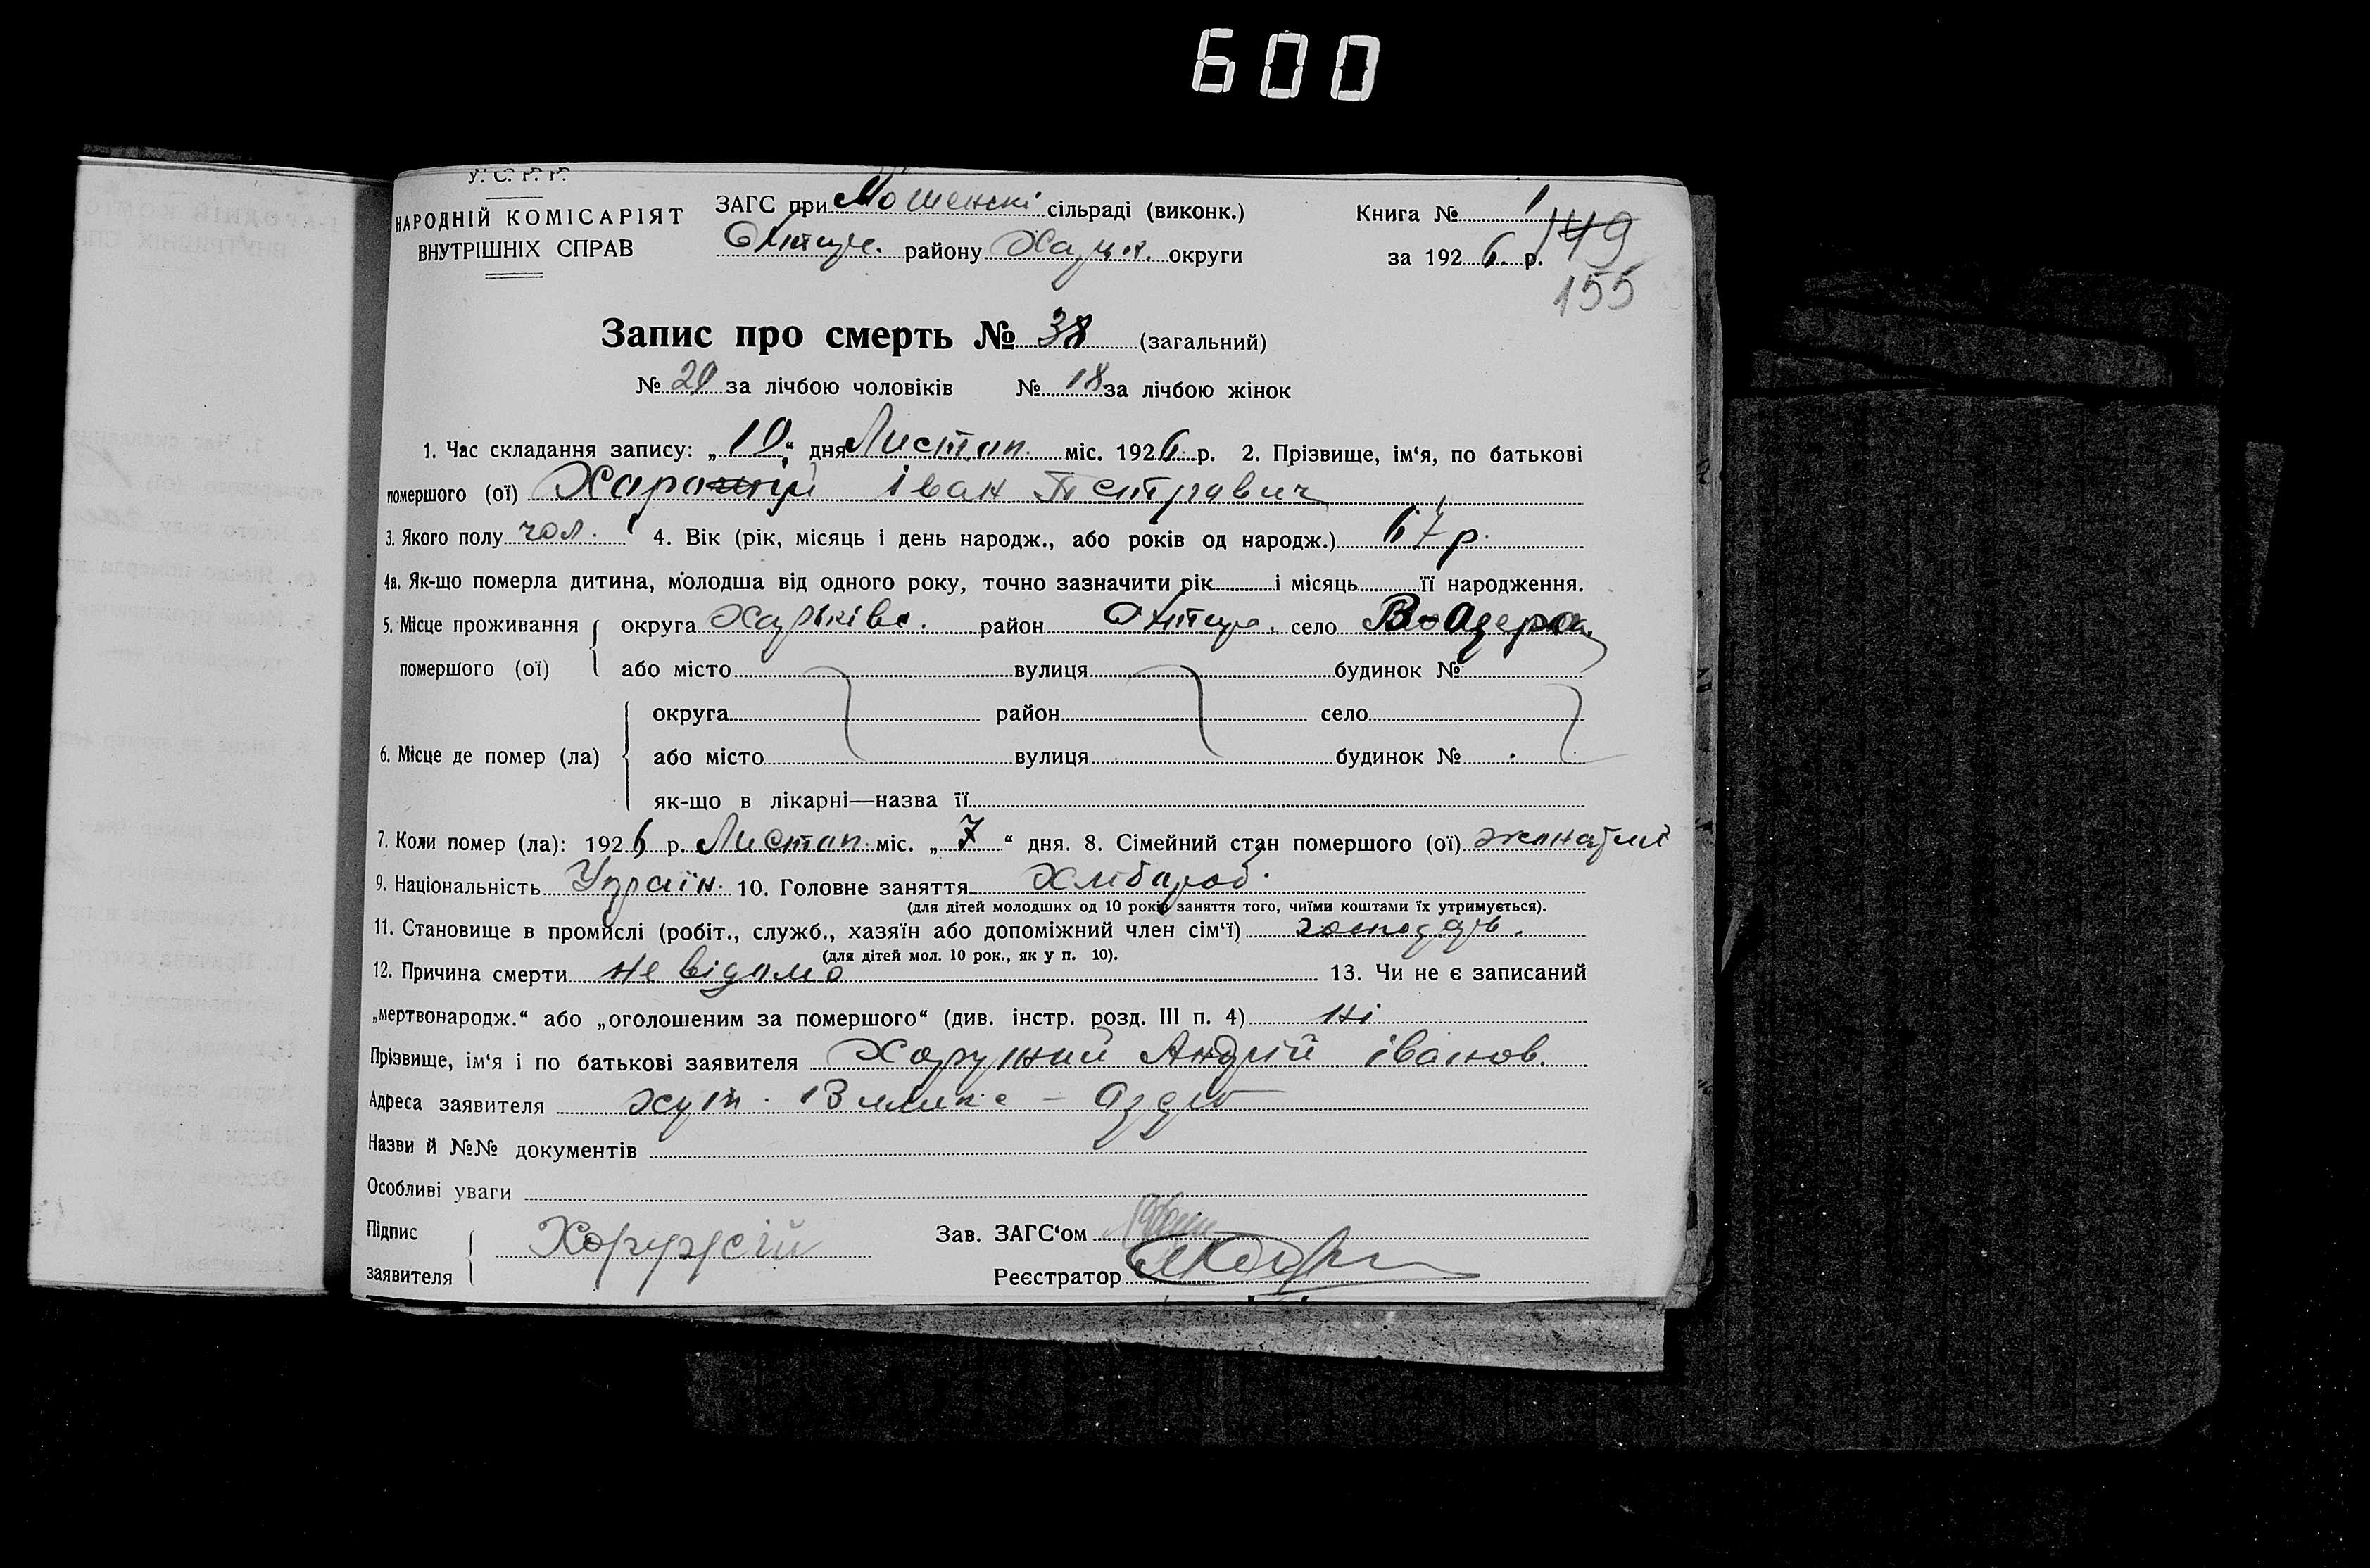 600
У. С. Р. Р.
НАРОДНІЙ КОМІСАРІЯТ
ВНУТРІШНІХ СПРАВ
ЗАГС при Мошенскі сільраді (виконк.)
району округи
Книга № 1
за 1926 р.
149
155
Запис про смерть № 38 (загальний)
№ 20 за лічбою чоловіків № 18 за лічбою жінок
1. Час складання запису: „10“ дня Листоп. міс. 1926 р. 2. Прізвище, ім‘я, по батькові
помершого (ої) Іван Петрович
3. Якого полу чол. 4. Вік (рік, місяць і день народж., або років од народж.) 67 р.
4а. Як-що померла дитина, молодша від одного року, точно зазначити рік і місяць її народження.
5. Місце проживання округа Харьківс. район село
помершого (ої) або місто вулиця будинок №
округа район село
6. Місце де помер (ла) або місто вулиця будинок №
як-що в лікарні—назва її
7. Коли помер (ла): 1926 р. Листоп. міс. „7“ дня. 8. Сімейний стан помершого (ої) жонатий
9. Національність Україн. 10. Головне заняття Хлібороб.
(для дітей молодших од 10 років заняття того, чиїми коштами їх утримується).
11. Становище в промислі (робіт., служб., хазяїн або допоміжний член сім‘ї)
(для дітей мол. 10 рок., як у п. 10).
12. Причина смерти не відомо 13. Чи не є записаний
„мертвонародж.“ або „оголошеним за помершого“ (див. інстр. розд. III п. 4) Ні
Прізвище, ім‘я і по батькові заявителя Андрій Іванов.
Адреса заявителя хут.
Назви й №№ документів
Особливі уваги
Підпис
заявителя Хоружій
Зав. ЗАГС‘ом
Реєстратор